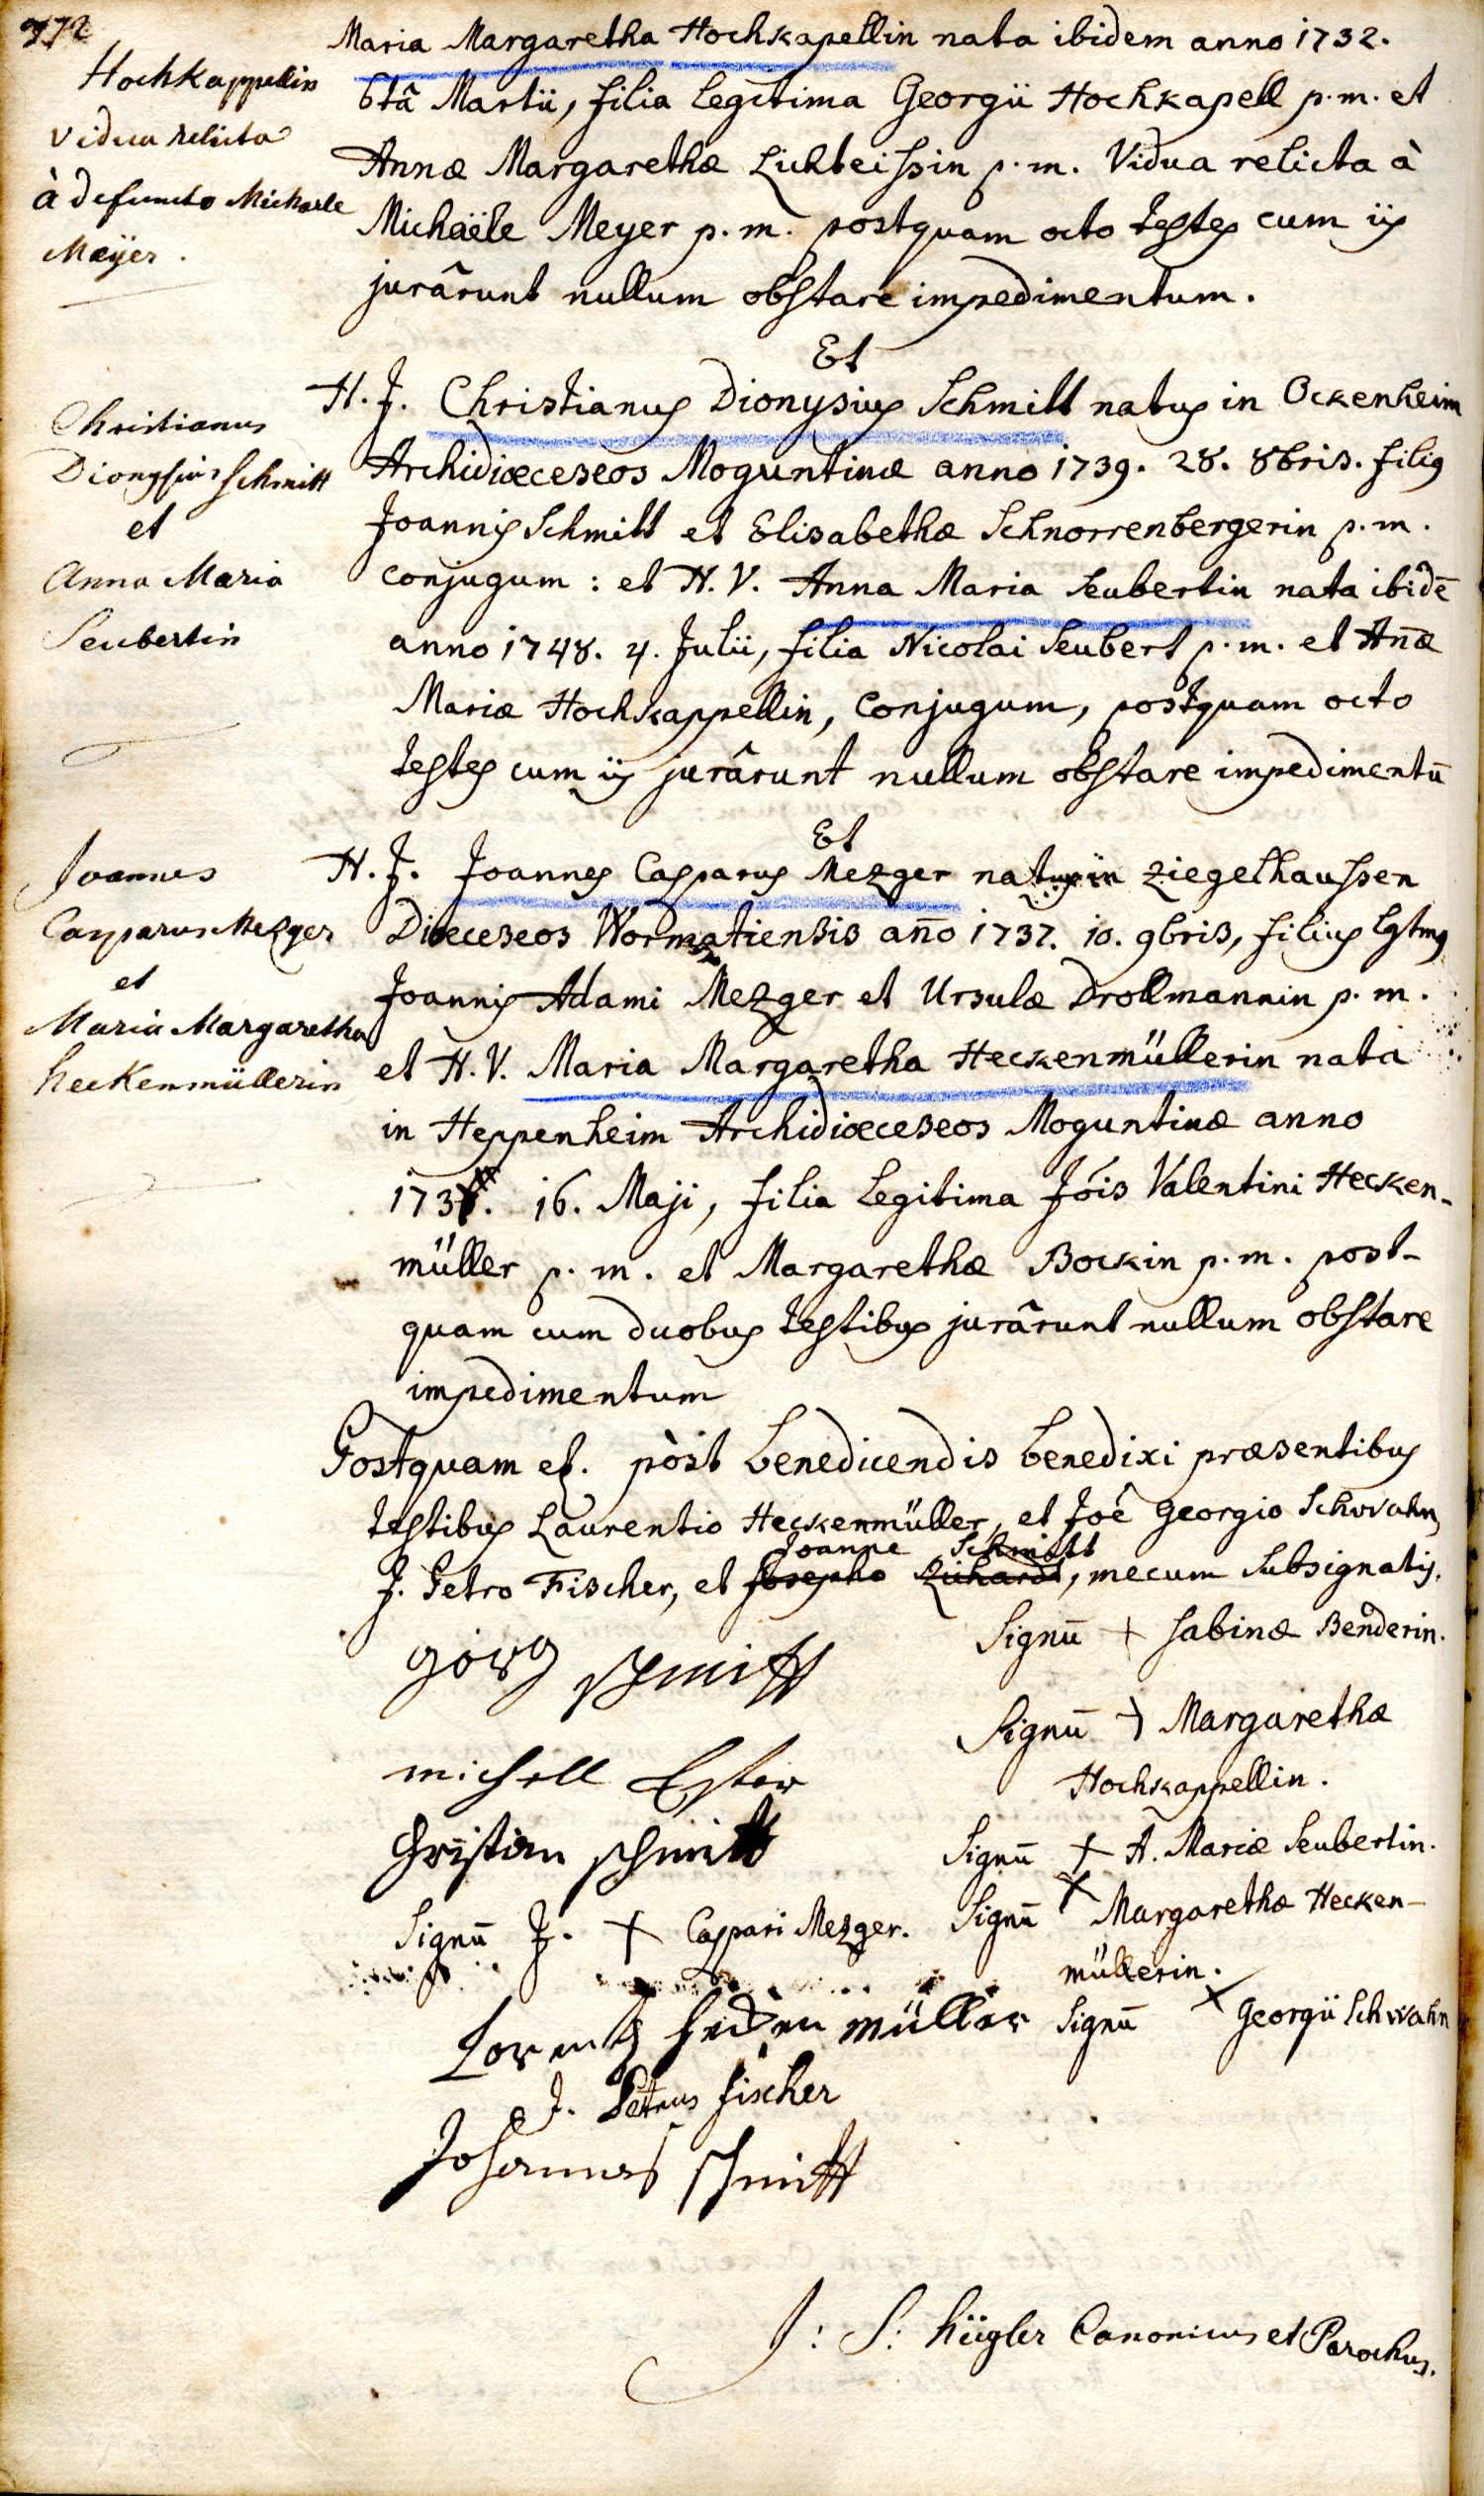 372
Hochkappellin
vidua relicta
à defuncto Michaele
Maÿer.
Maria Margaretha Hochkapellin nata ibidem anno 1732.
6tâ Martii, filia legitima Georgii Hochkapell p.m. et
Annæ Margarethæ Lichteissin p.m. Vidua relicta à
Michaële Meyer p.m. postquam octo testes cum iis
jurârunt nullum obstare impedimentum.
Et
Christianus
Dionysius Schmitt
et
Anna Maria
Seubertin
H. J. Christianus Dionysius Schmitt natus in Ockenheim
Archidiœceseos Moguntinæ anno 1739. 28. 8bris. filiꝰ
Joannis Schmitt et Elisabethæ Schnorrenbergerin p.m.
conjugum: et H. V. Anna Maria Seubertin nata ibidē
anno 1748. 4. Julii, filia Nicolai Seubert p.m. et An̄æ
Mariæ Hochkappellin, Conjugum, postquam octo
testes cum iis jurârunt nullum obstare impedimentū
Et
Joannes
Casparus Mezger
et
Maria Margaretha
Heckenmüllerin
H. J. Joannes Casparus Mezger natus in Ziegelhaussen
Diœceseos Wormatiensis an̄o 1737. 10. 9bris, filius lgtmꝰ
Joannis Adami Mezger et Ursulæ Drollmannin p.m.
et H. V. Maria Margaretha Heckenmüllerin nata
in Heppenheim Archidiœceseos Moguntinæ anno
173 . 16. Maji, filia legitima Jôis Valentini Hecken-
müller p.m. et Margarethæ Bockin p.m. post-
quam cum duobus testibus jurârunt nullum obstare
impedimentum
Postquam et. pòst benedicendis benedixi præsentibus
testibus Laurentio Heckenmüller, et Joê Georgio Schwahn,
Joanne Schmitt
J. Petro Fischer, et Josepho Lichardt, mecum subsignatis.
görg schmitt
Signū + Sabinæ Benderin.
michell Ester
Signū + Margarethæ
Hochkappellin.
Christian schmitt
Signū + A. Mariæ Seubertin.
Signū J. + Caspari Mezger.
Signū + Margarethæ Hecken-
müllerin.
Lorentz heckenmüller
Signū + Georgii Schwahn
J. Petrus fischer
Johannes schmitt
J: S: Hügler Canonicus et Parochus.